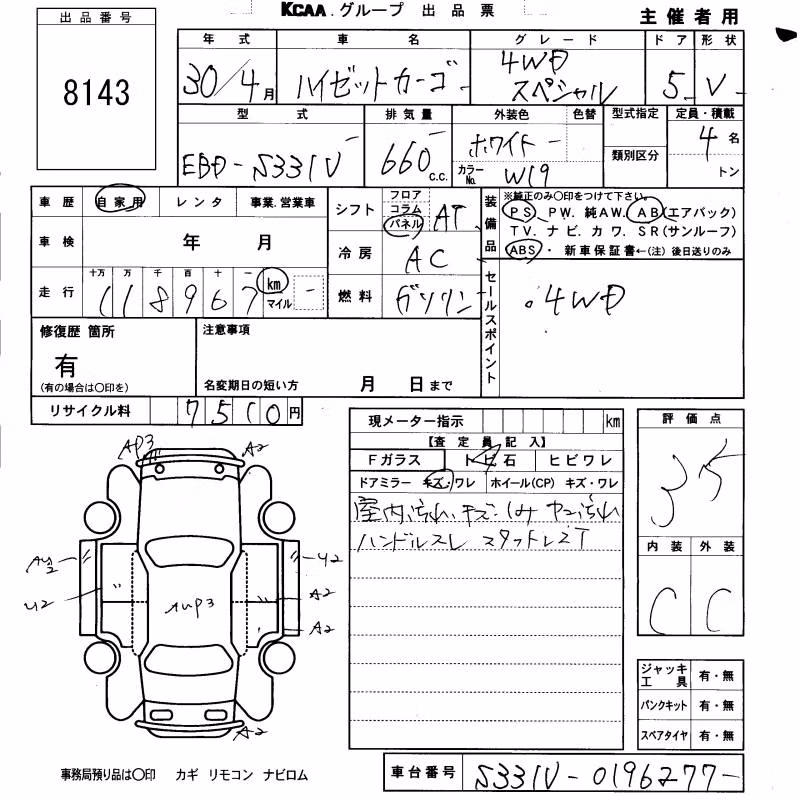 KCAA.グループ 出品票
主催者用
出品番号
8143
年式 車名 グレード ドア 形状
30/4月 ハイゼットカーゴ 4WD スペシャル 5 V
型式 排気量 外装色 色替 型式指定 定員・積載
EBD-S331V 660 c.c. ホワイト 類別区分 4名
カラーNo. W19 トン
車歴 自家用 レンタ 事業.営業車
車検 年 月
十万 万 千 百 十 一
走行 118967 km マイル
シフト フロア コラム パネル AT
冷房 AC
燃料 ガソリン
装備品 ※純正のみ〇印をつけて下さい。
PS、PW. 純AW. AB(エアバック)
TV. ナビ. カワ. SR(サンルーフ)
ABS・新車保証書←(注)後日送りのみ
セールスポイント
4WD
修復歴 箇所 注意事項
有
(有の場合は〇印を) 名変期日の短い方 月 日まで
リサイクル料 7510円
現メーター指示 km
【査定員記入】
Fガラス 石 ヒビワレ
ドアミラー キズ・ワレ ホイール(CP) キズ・ワレ
室内汚れ、キズ・しみ ヤニ汚れ
ハンドルスレ スタットレスT
評価点
35
内装 外装
C C
AP3
A2
U2
U2
A2
AUP3
A2
A2
ジャッキ工具 有・無
パンクキット 有・無
スペアタイヤ 有・無
事務局預り品は〇印 カギ リモコン ナビロム
車台番号 S331V-0196277-